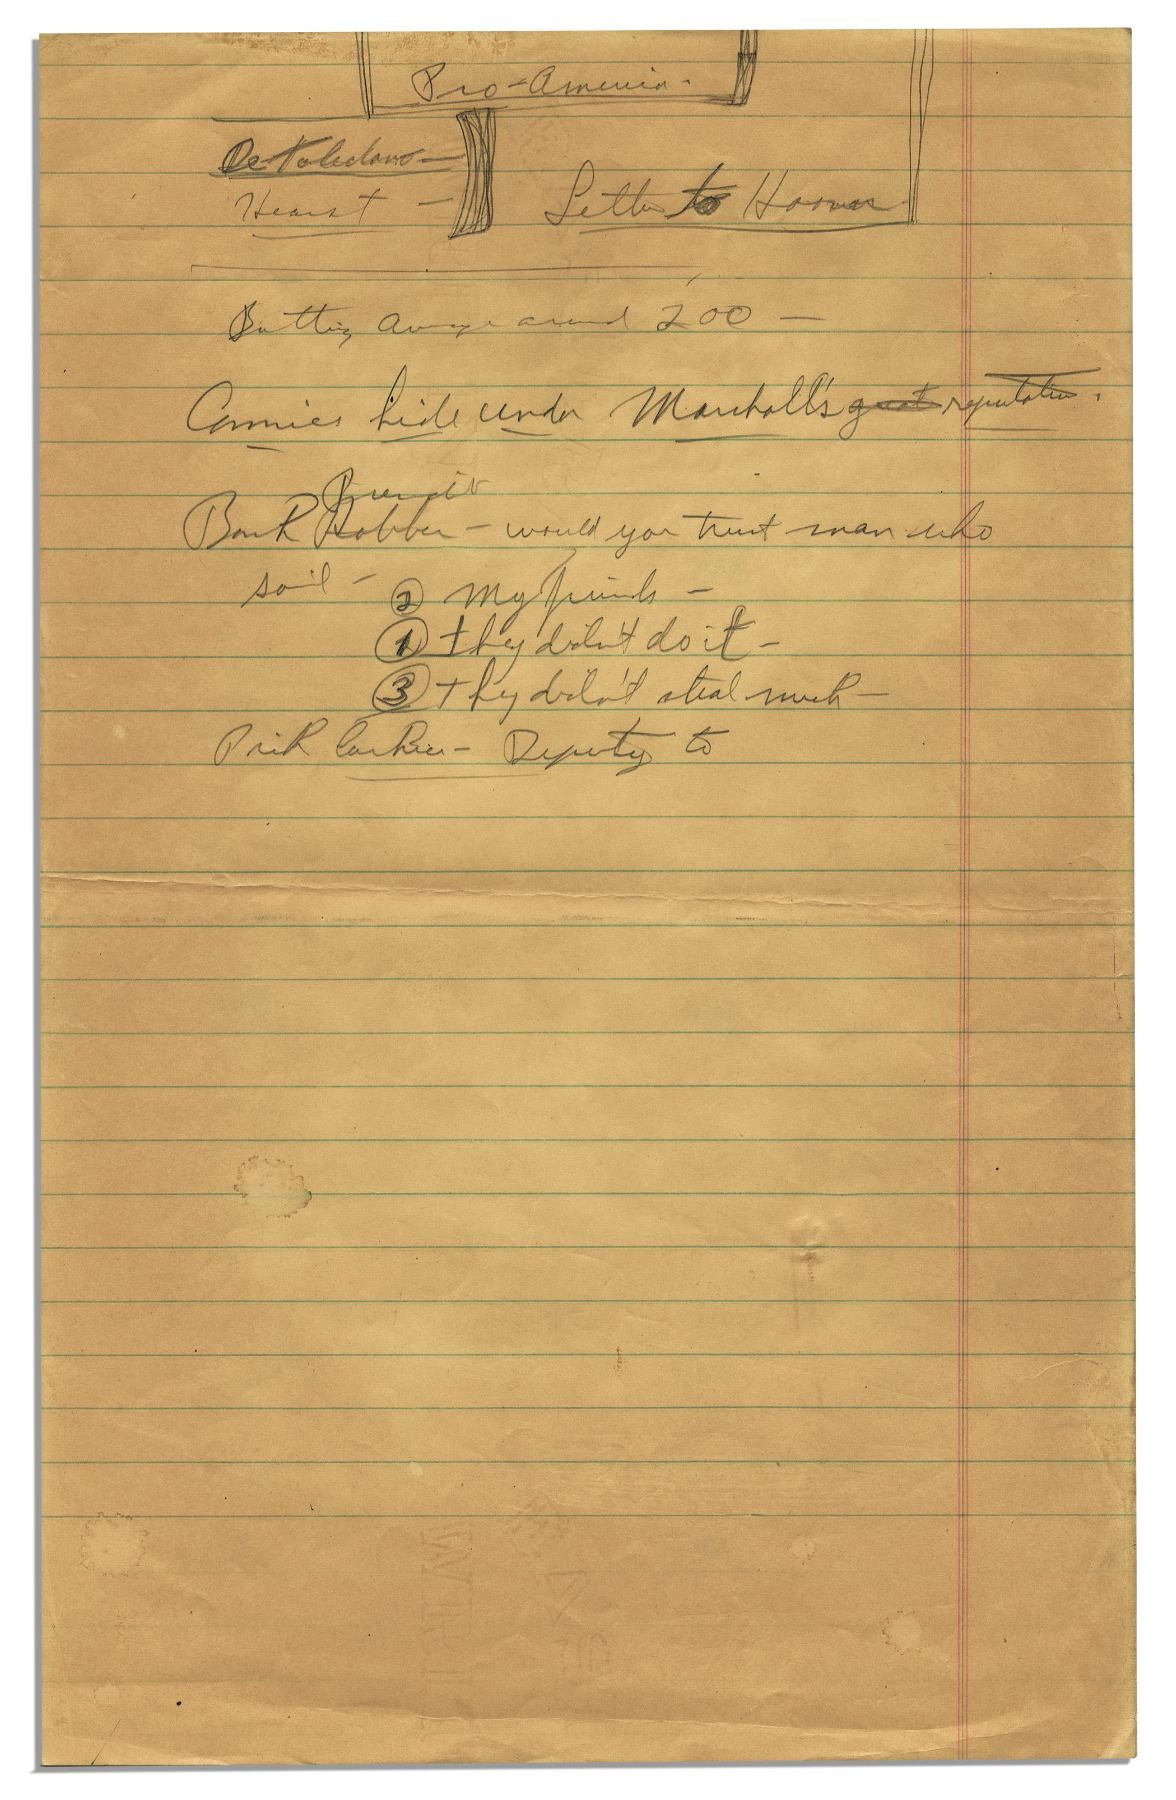 Pro-America.
De Toledano —
Hearst —
Letter to Hoover
Batting average around 200 —
Commies hide under Marshall's great reputation.
Bank Robber — would you trust man who
said —
② My friends —
① they didn't do it —
③ they didn't steal much —
Deputy to